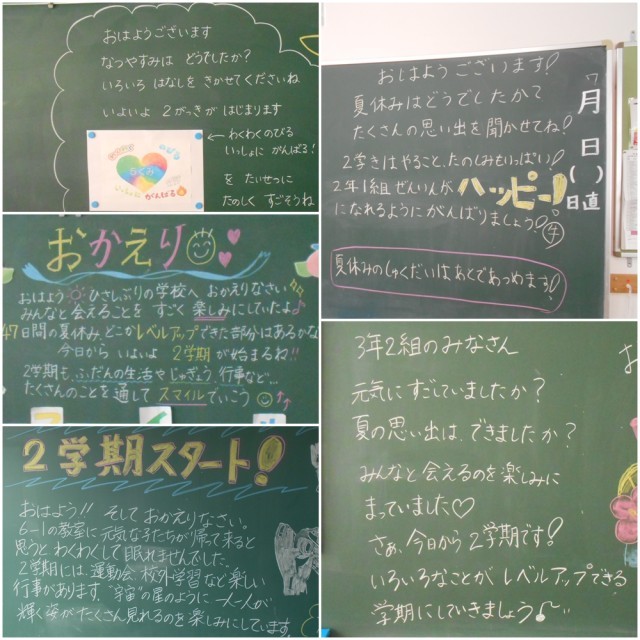 おはようございます
なつやすみは どうでしたか?
いろいろ はなしを きかせてくださいね
いよいよ 2がっきが はじまります
←わくわくのびる
いっしょに がんばる!
がんばる
を たいせつに
たのしく すごそうね
おはようございます!
夏休みはどうでしたか?
たくさんの思い出を聞かせてね!
2学きはやること、たのしみもいっぱい!
2年1組ぜんいんが ハッピー
になれるようにがんばりましょう!
夏休みのしゅくだいは、あとであつめます!
月
日
( )
日直
おかえり
おはよう ひさしぶりの学校へ おかえりなさい
みんなと会えることを すごく 楽しみにしていたよ♪
47日間の夏休み、どこかレベルアップできた部分はあるかな
今日から いよいよ 2学期が始まるね!!
2学期も、ふだんの生活や じゅぎょう、行事など…
たくさんのことを通して スマイルでいこう
2学期スタート!
おはよう!! そして おかえりなさい。
6-1の教室に元気な子たちが帰って来ると
思うと わくわくして眠れませんでした。
2学期には、運動会、校外学習など楽しい
行事があります。"宇宙"の星のように 一人一人が
輝く姿がたくさん見れるのを楽しみにしています。
3年2組のみなさん
元気にすごしていましたか?
夏の思い出は、できましたか?
みんなと会えるのを楽しみに
まっていました♡
さぁ、今日から2学期です!
いろいろなことが レベルアップできる
学期にしていきましょう♪
お